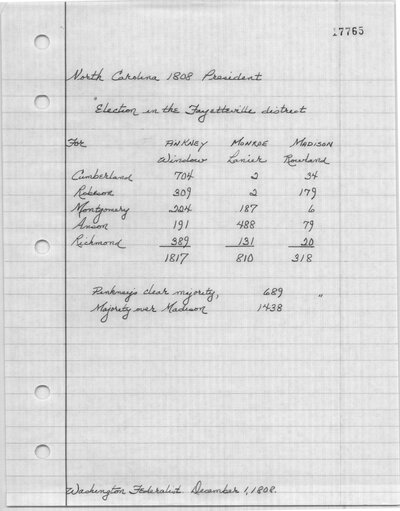 17765
North Carolina 1808 President
"Election in the Fayetteville district
For PINKNEY MONROE MADISON
Winslow Lanier Rowland
Cumberland 704 2 34
Robeson 309 2 179
Montgomery 224 187 6
Anson 191 488 79
Richmond 389 131 20
1817 810 318
Pinkney's clear majority, 689 "
Majority over Madison 1438
Washington Federalist December 1, 1808.